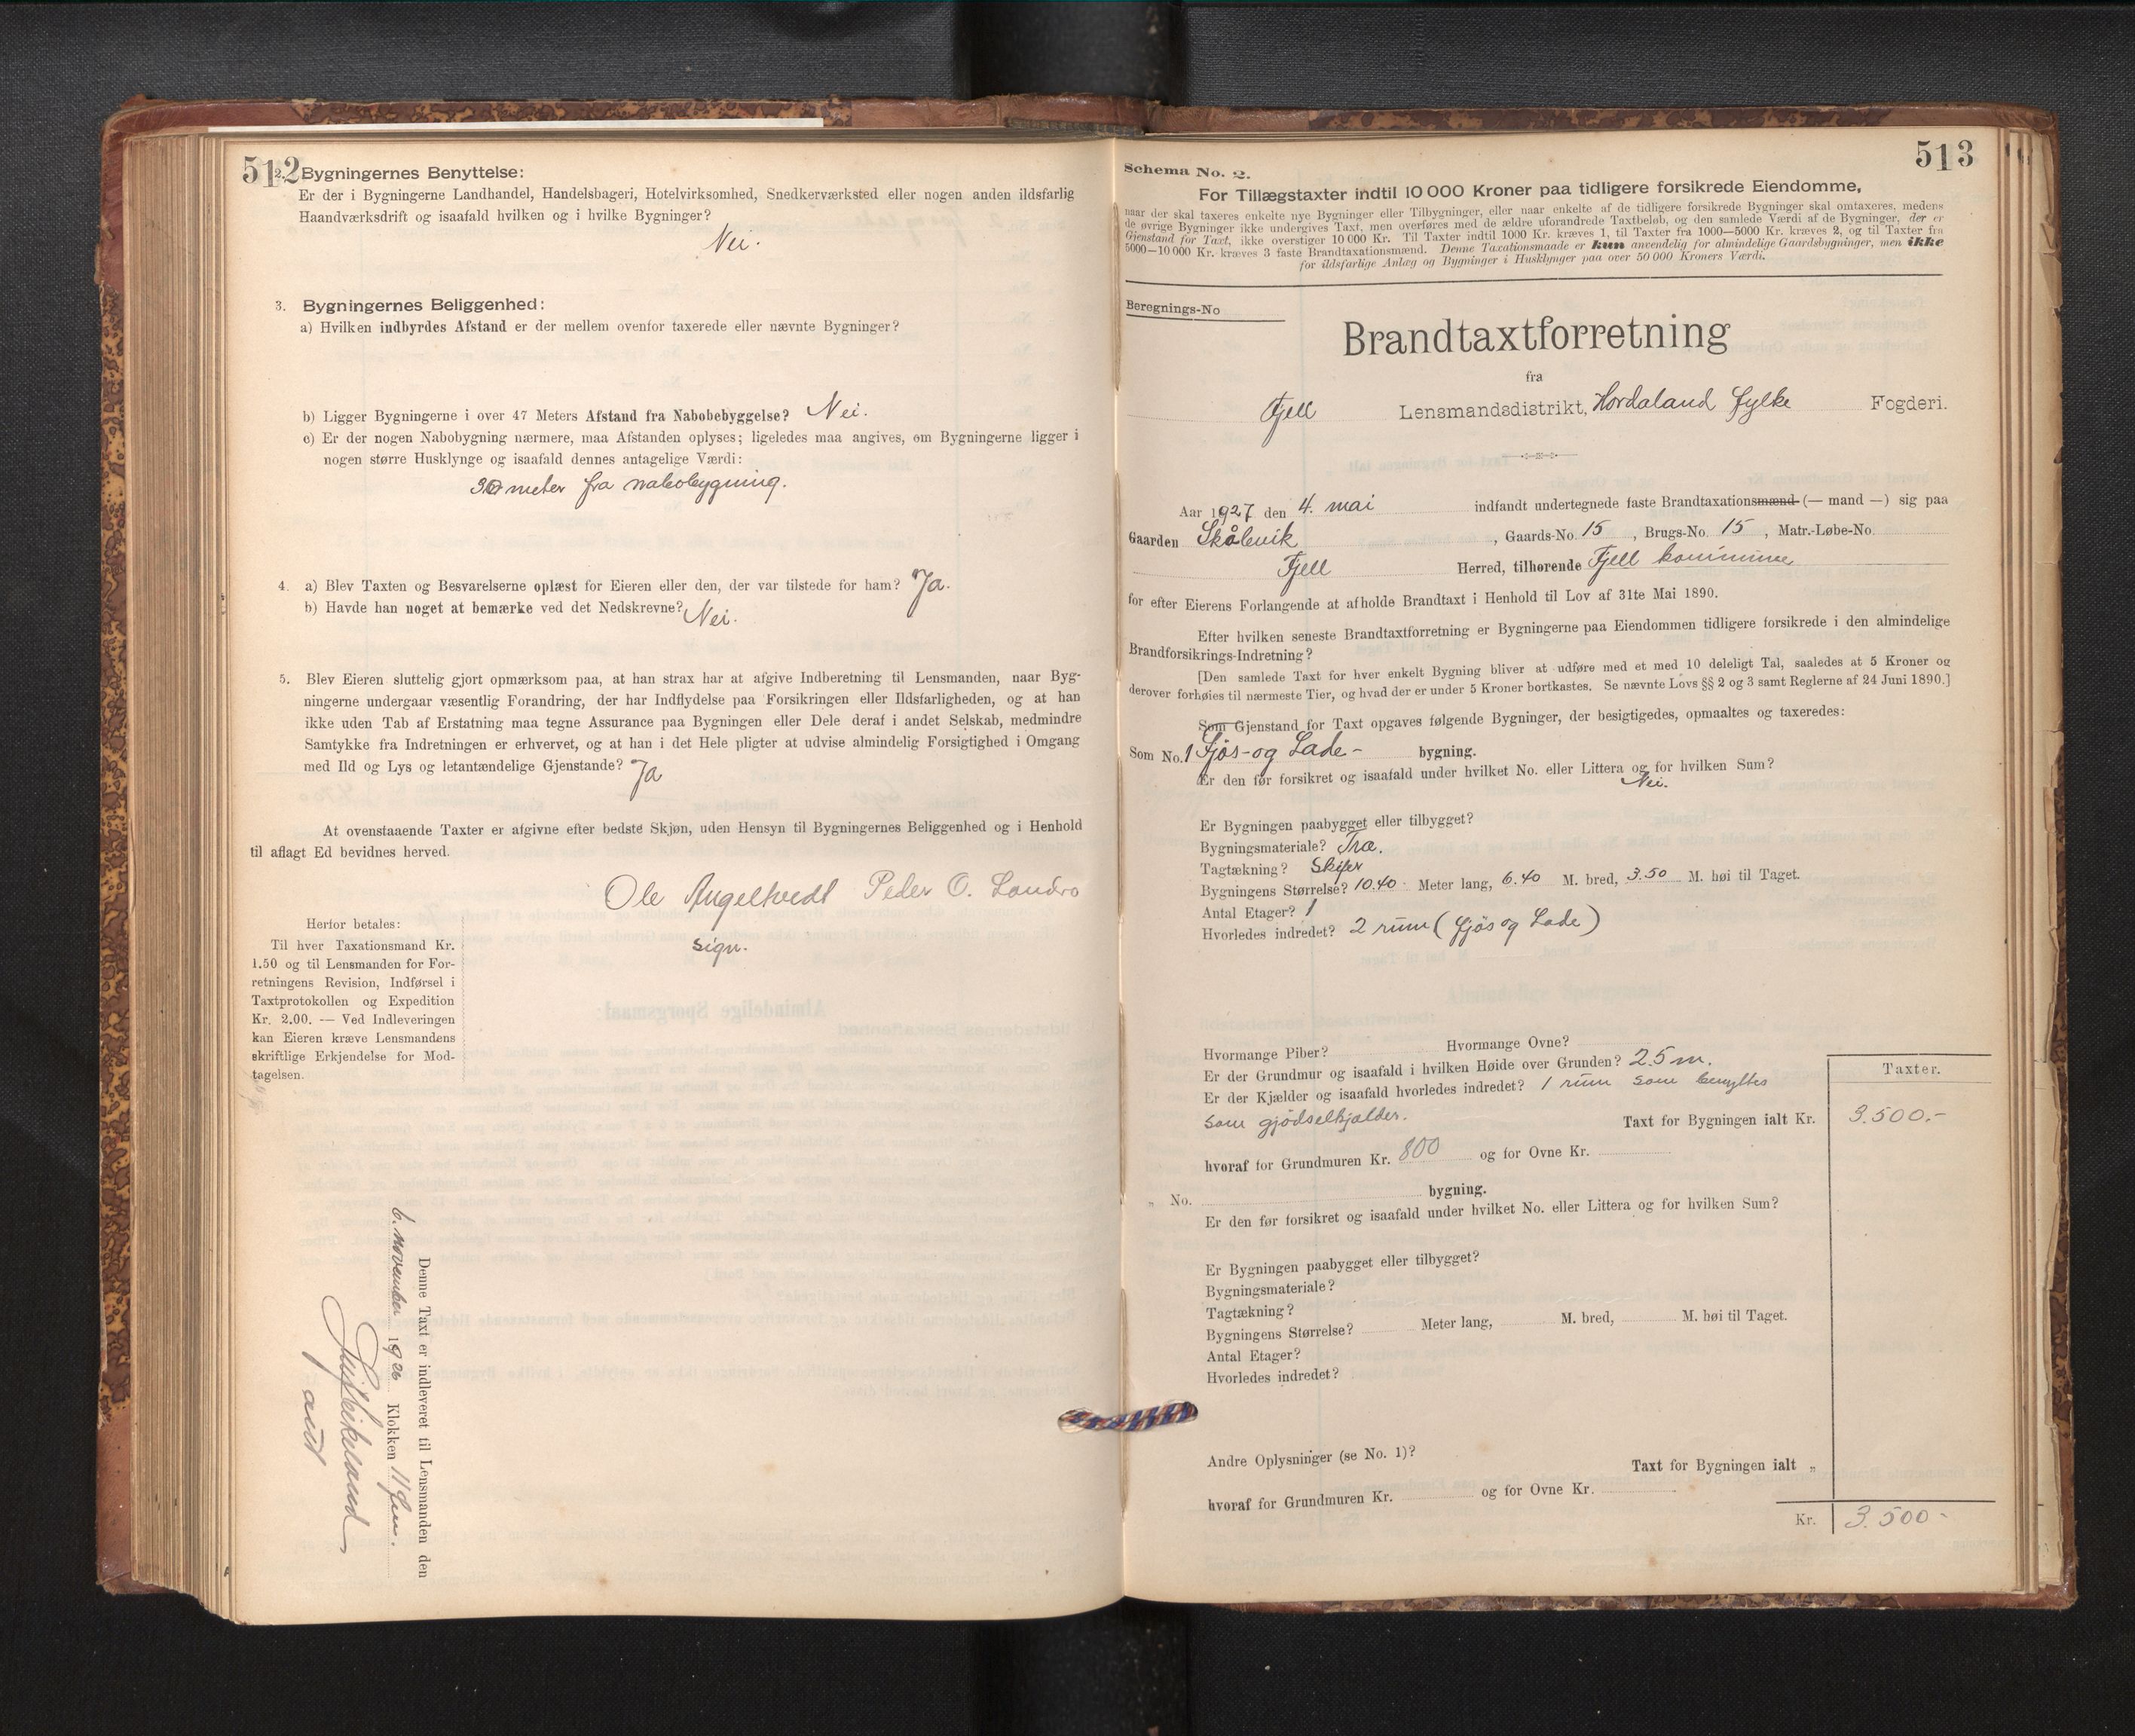 512
2. Bygningernes Benyttelse:
Er der i Bygningerne Landhandel, Handelsbageri, Hotelvirksomhed, Snedkerværksted eller nogen anden ildsfarlig
Haandværksdrift og isaafald hvilken og i hvilke Bygninger?
Nei.
3. Bygningernes Beliggenhed:
a) Hvilken indbyrdes Afstand er der mellem ovenfor taxerede eller nævnte Bygninger?
b) Ligger Bygningerne i over 47 Meters Afstand fra Nabobebyggelse? Nei.
c) Er der nogen Nabobygning nærmere, maa Afstanden oplyses; ligeledes maa angives, om Bygningerne ligger i
nogen større Husklynge og isaafald dennes antagelige Værdi:
30 meter fra nabobygning.
4. a) Blev Taxten og Besvarelserne oplæst for Eieren eller den, der var tilstede for ham? Ja.
b) Havde han noget at bemærke ved det Nedskrevne? Nei.
5. Blev Eieren sluttelig gjort opmærksom paa, at han strax har at afgive Indberetning til Lensmanden, naar Byg-
ningerne undergaar væsentlig Forandring, der har Indflydelse paa Forsikringen eller Ildsfarligheden, og at han
ikke uden Tab af Erstatning maa tegne Assurance paa Bygningen eller Dele deraf i andet Selskab, medmindre
Samtykke fra Indretningen er erhvervet, og at han i det Hele pligter at udvise almindelig Forsigtighed i Omgang
med Ild og Lys og letantændelige Gjenstande? Ja
At ovenstaaende Taxter er afgivne efter bedste Skjøn, uden Hensyn til Bygningernes Beliggenhed og i Henhold
til aflagt Ed bevidnes herved.
Ole Angeltvedt Peder O. Landro
sign.
Herfor betales:
Til hver Taxationsmand Kr.
1.50 og til Lensmanden for For-
retningens Revision, Indførsel i
Taxtprotokollen og Expedition
Kr. 2.00. — Ved Indleveringen
kan Eieren kræve Lensmandens
skriftlige Erkjendelse for Mod-
tagelsen.
Denne Taxt er indleveret til Lensmanden den
6. november 1926 Klokken 11 fm.
513
Schema No. 2.
For Tillægstaxter indtil 10 000 Kroner paa tidligere forsikrede Eiendomme,
naar der skal taxeres enkelte nye Bygninger eller Tilbygninger, eller naar enkelte af de tidligere forsikrede Bygninger skal omtaxeres, medens
de øvrige Bygninger ikke undergives Taxt, men overføres med de ældre uforandrede Taxtbeløb, og den samlede Værdi af de Bygninger, der er
Gjenstand for Taxt, ikke overstiger 10 000 Kr. Til Taxter indtil 1000 Kr. kræves 1, til Taxter fra 1000—5000 Kr. kræves 2, og til Taxter fra
5000—10 000 Kr. kræves 3 faste Brandtaxationsmænd. Denne Taxationsmaade er kun anvendelig for almindelige Gaardsbygninger, men ikke
for ildsfarlige Anlæg og Bygninger i Husklynger paa over 50 000 Kroners Værdi.
Beregnings-No
Brandtaxtforretning
fra
Fjell Lensmandsdistrikt, Hordaland fylke Fogderi.
Aar 1927 den 4. mai indfandt undertegnede faste Brandtaxationsmænd (— mand —) sig paa
Gaarden Skålevik, Gaards-No. 15, Brugs-No. 15, Matr.-Løbe-No.
Fjell Herred, tilhørende Fjell kommune
for efter Eierens Forlangende at afholde Brandtaxt i Henhold til Lov af 31te Mai 1890.
Efter hvilken seneste Brandtaxtforretning er Bygningerne paa Eiendommen tidligere forsikrede i den almindelige
Brandforsikrings-Indretning?
[Den samlede Taxt for hver enkelt Bygning bliver at udføre med et med 10 deleligt Tal, saaledes at 5 Kroner og
derover forhøies til nærmeste Tier, og hvad der er under 5 Kroner bortkastes. Se nævnte Lovs §§ 2 og 3 samt Reglerne af 24 Juni 1890.]
Som Gjenstand for Taxt opgaves følgende Bygninger, der besigtigedes, opmaaltes og taxeredes:
Som No. 1 Fjøs- og Lade- bygning.
Er den før forsikret og isaafald under hvilket No. eller Littera og for hvilken Sum?
Nei.
Er Bygningen paabygget eller tilbygget?
Bygningsmateriale? Træ.
Tagtækning? Skifer
Bygningens Størrelse? 10.40 Meter lang, 6.40 M. bred, 3.50 M. høi til Taget.
Antal Etager? 1
Hvorledes indredet? 2 rum (fjøs og Lade)
Hvormange Piber? Hvormange Ovne?
Er der Grundmur og isaafald i hvilken Høide over Grunden? 2.5 m.
Er der Kjælder og isaafald hvorledes indredet? 1 rum som benyttes
som gjødselkjælder.
Taxter.
Taxt for Bygningen ialt Kr. 3.500.-
hvoraf for Grundmuren Kr. 800 og for Ovne Kr.
„ No. bygning.
Er den før forsikret og isaafald under hvilket No. eller Littera og for hvilken Sum?
Er Bygningen paabygget eller tilbygget?
Bygningsmateriale?
Tagtækning?
Bygningens Størrelse? Meter lang, M. bred, M. høi til Taget.
Antal Etager?
Hvorledes indredet?
Andre Oplysninger (se No. 1)?
Taxt for Bygningen ialt „
hvoraf for Grundmuren Kr. og for Ovne Kr.
Kr. 3.500-